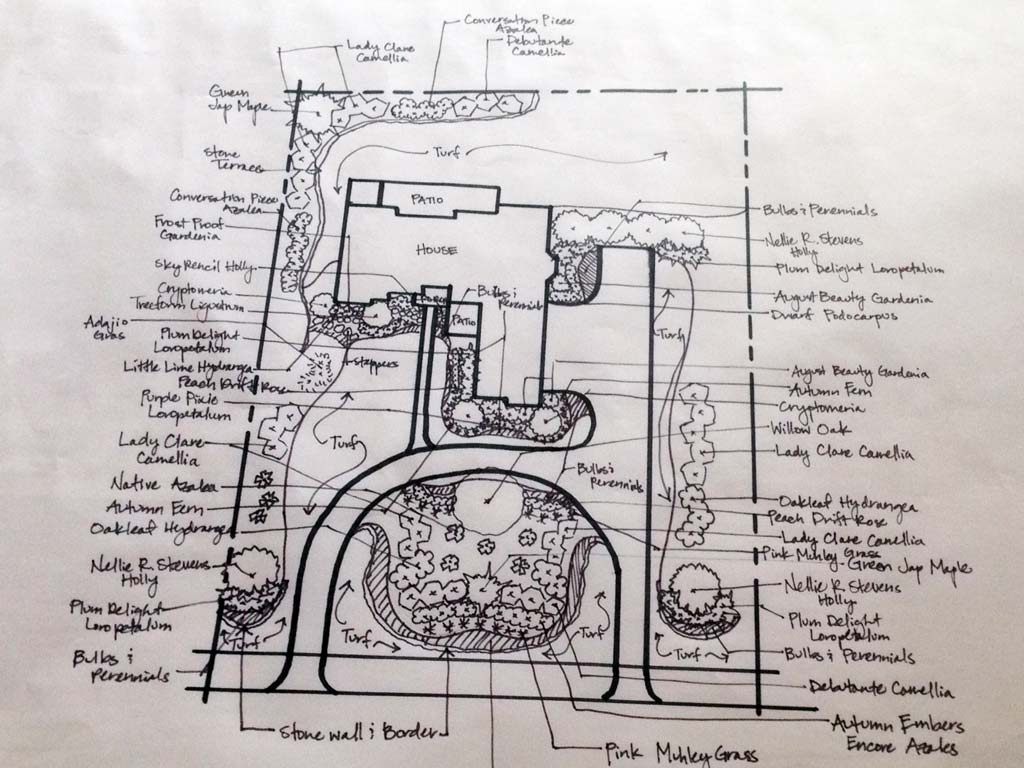 Conversation Piece
Azalea
Debutante
Camellia
Lady Clare
Camellia
Green
Jap Maple
Stone
Terrace
Turf
Conversation Piece
Azalea
Frost Proof
Gardenia
Sky Pencil Holly
Cryptomeria
Treeform Ligustrum
Adajio
Grass
Plum Delight
Loropetalum
Little Lime Hydrangea
Peach Drift Rose
Purple Pixie
Loropetalum
Lady Clare
Camellia
Native Azalea
Autumn Fern
Oakleaf Hydrangea
Nellie R. Stevens
Holly
Plum Delight
Loropetalum
Bulbs &
Perennials
PATIO
HOUSE
PORCH
PATIO
Bulbs &
Perennials
Steppers
Turf
Bulbs &
Perennials
Turf
Turf
Turf
Turf
Turf
Bulbs & Perennials
Nellie R. Stevens
Holly
Plum Delight Loropetalum
August Beauty Gardenia
Dwarf Podocarpus
August Beauty Gardenia
Autumn Fern
Cryptomeria
Willow Oak
Lady Clare Camellia
Oakleaf Hydrangea
Peach Drift Rose
Lady Clare Camellia
Pink Muhley Grass
Green Jap Maple
Nellie R. Stevens
Holly
Plum Delight
Loropetalum
Bulbs & Perennials
Debutante Camellia
Autumn Embers
Encore Azalea
Stone wall & Border
Pink Muhley Grass